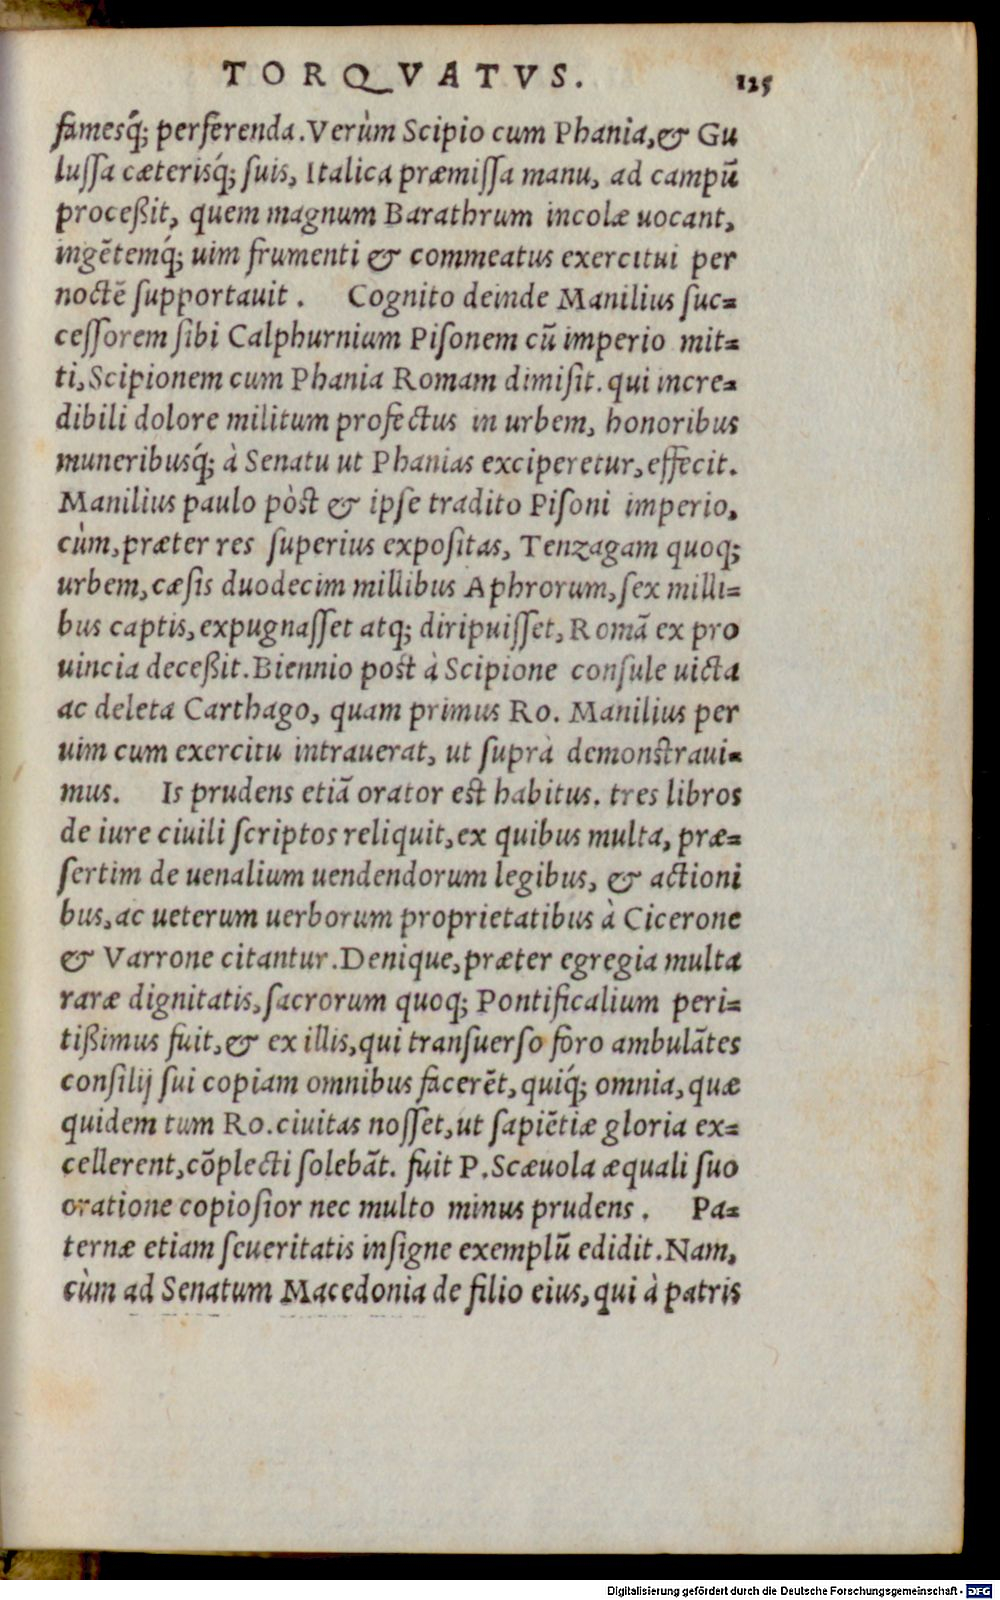 TORQVATVS. 125
famesq́; perferenda. Verùm Scipio cum Phania, & Gu
lussa cæterisq́; suis, Italica præmissa manu, ad campũ
proceßit, quem magnum Barathrum incolæ uocant,
ingẽtemq́; uim frumenti & commeatus exercitui per
noctẽ supportauit. Cognito deinde Manilius suc=
cessorem sibi Calphurnium Pisonem cũ imperio mit=
ti, Scipionem cum Phania Romam dimisit. qui incre=
dibili dolore militum profectus in urbem, honoribus
muneribusq́; à Senatu ut Phanias exciperetur, effecit.
Manilius paulo pòst & ipse tradito Pisoni imperio,
cùm, præter res superius expositas, Tenzagam quoq;
urbem, cæsis duodecim millibus Aphrorum, sex milli=
bus captis, expugnasset atq; diripuisset, Romã ex pro
uincia deceßit. Biennio post à Scipione consule uicta
ac deleta Carthago, quam primus Ro. Manilius per
uim cum exercitu intrauerat, ut suprà demonstraui=
mus. Is prudens etiã orator est habitus. tres libros
de iure ciuili scriptos reliquit, ex quibus multa, præ=
sertim de uenalium uendendorum legibus, & actioni
bus, ac ueterum uerborum proprietatibus à Cicerone
& Varrone citantur. Denique, præter egregia multa
raræ dignitatis, sacrorum quoq; Pontificalium peri=
tißimus fuit, & ex illis, qui transuerso foro ambulãtes
consilij sui copiam omnibus facerẽt, quiq́; omnia, quæ
quidem tum Ro. ciuitas nosset, ut sapiẽtiæ gloria ex=
cellerent, cõplecti solebãt. fuit P. Scæuola æquali suo
oratione copiosior nec multo minus prudens. Pa=
ternæ etiam seueritatis insigne exemplũ edidit. Nam,
cùm ad Senatum Macedonia de filio eius, qui à patris
Digitalisierung gefördert durch die Deutsche Forschungsgemeinschaft - DFG